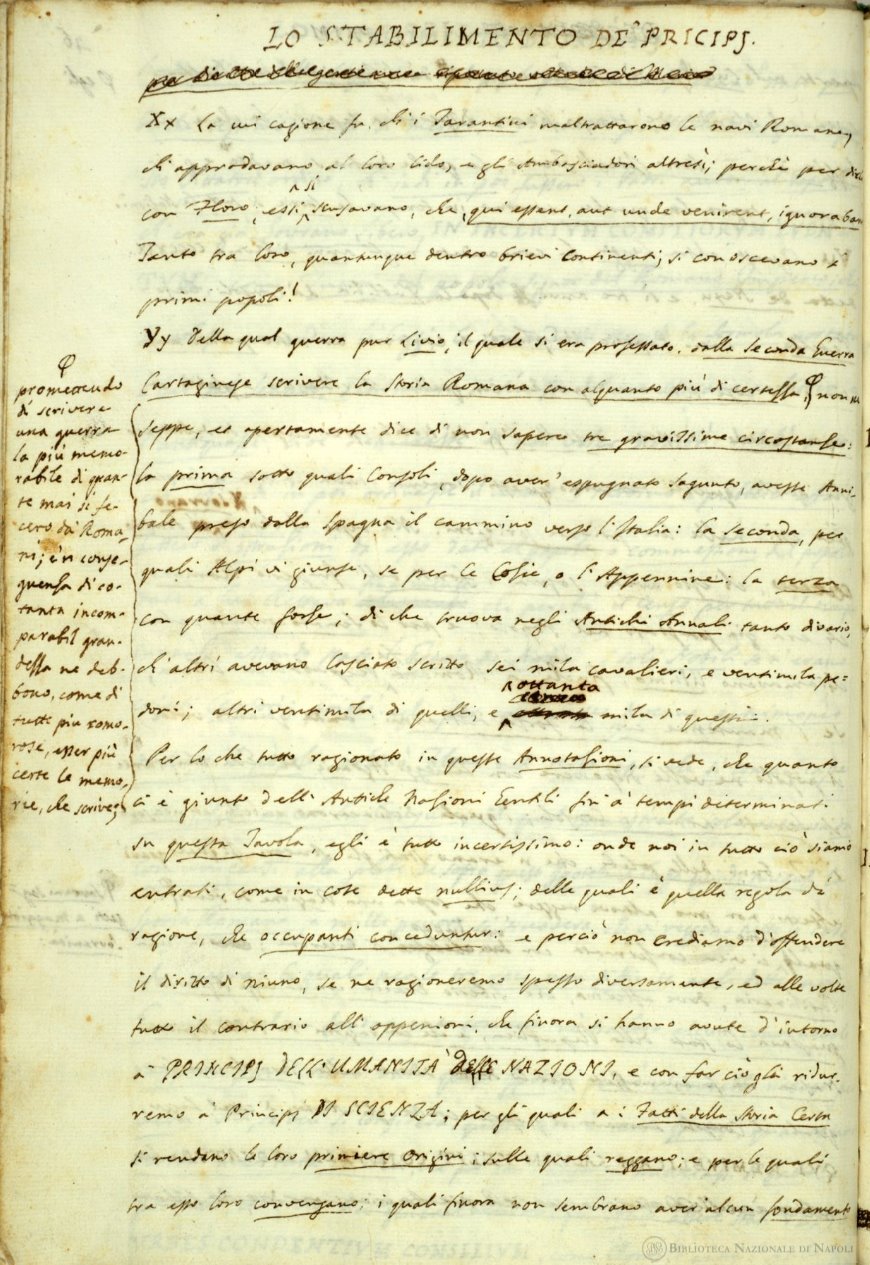 LO STABILIMENTO DE' PRICIPJ.
Xx La cui cagione fu, ch'i Tarantini maltrattarono le navi Romane,
ch'approdavano al loro lido, e gli Ambasciadori altresì; perchè per dirla
con Floro, essi si scusavano, che, qui essent, aut unde venirent, ignorabant
Tanto tra loro, quantunque dentro brievi continenti, si conoscevano i
primi popoli!
Yy Della qual guerra pur Livio, il quale si era professato, dalla Seconda Guerra
Cartaginese scrivere la Storia Romana con alquanto più di certezza, non ne
seppe, et apertamente dice di non sapere tre gravissime circostanze:
la prima sotto quali Consoli, dopo aver' espugnato Sagunto, avesse Anni-
bale preso dalla Spagna il cammino verso l'Italia: la seconda, per
quali Alpi vi giunse, se per le Cozie, o l'Appennine: la terza
con quante forze; di che truova negli Antichi Annali tanto divario,
ch'altri avevano lasciato scritto sei mila cavalieri, e ventimila pe-
doni; altri ventimila di quelli, e ottanta mila di questi.
Per lo che tutto ragionato in queste Annotazioni, si vede, che quanto
ci è giunto dell'Antiche Nazioni Gentili fin a' tempi determinati
su questa Tavola, egli è tutto incertissimo: onde noi in tutto ciò siamo
entrati, come in cose dette nullius; delle quali è quella regola di
ragione, che occupanti conceduntur: e perciò non crediamo d'offendere
il diritto di niuno, se ne ragioneremo spesso diversamente, ed alle volte
tutto il contrario all'oppenioni, che finora si hanno avute d'intorno
a' PRINCIPJ DELL'UMANITÀ delle NAZIONI. e con far ciò gli ridur-
remo a' Principj DI SCIENZA; per gli quali a i Fatti della Storia Certa
si rendano le loro primiere origini; sulle quali reggano; e per le quali
tra esso loro convengano: i quali finora non sembrano aver'alcun fondamento
promettendo
di scrivere
una guerra
la più memo-
rabile di quan-
te mai si fe-
cero da' Roma-
ni; e 'n conse-
guenza di co-
tanta incom-
parabil gran-
dezza ne deb-
bono, come di
tutte più romo-
rose, esser più
certe le memo-
rie, che scrive;
BIBLIOTECA NAZIONALE DI NAPOLI